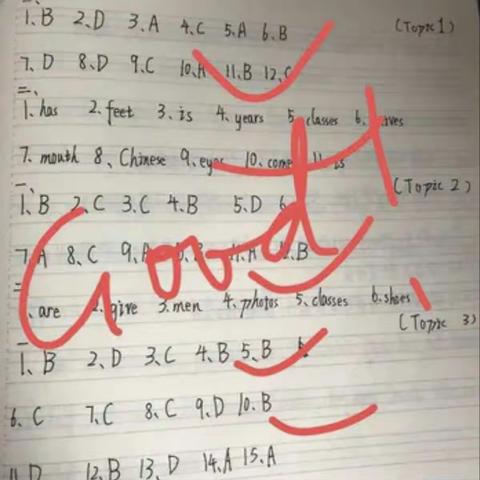 1. B 2. D 3. A 4. C 5. A 6. B (Topic 1)
7. D 8. D 9. C 10. A 11. B 12. C
二、
1. has 2. feet 3. is 4. years 5. classes 6.
7. mouth 8. Chinese 9. eyes 10. come 11. is
一、
1. B 2. C 3. C 4. B 5. D 6. (Topic 2)
7. A 8. C 9. A 11. A 12. B
Good!
are 2. give 3. men 4. photos 5. classes 6. shoes
(Topic 3)
1. B 2. D 3. C 4. B 5. B
6. C 7. C 8. C 9. D 10. B
11. D 12. B 13. D 14. A 15. A